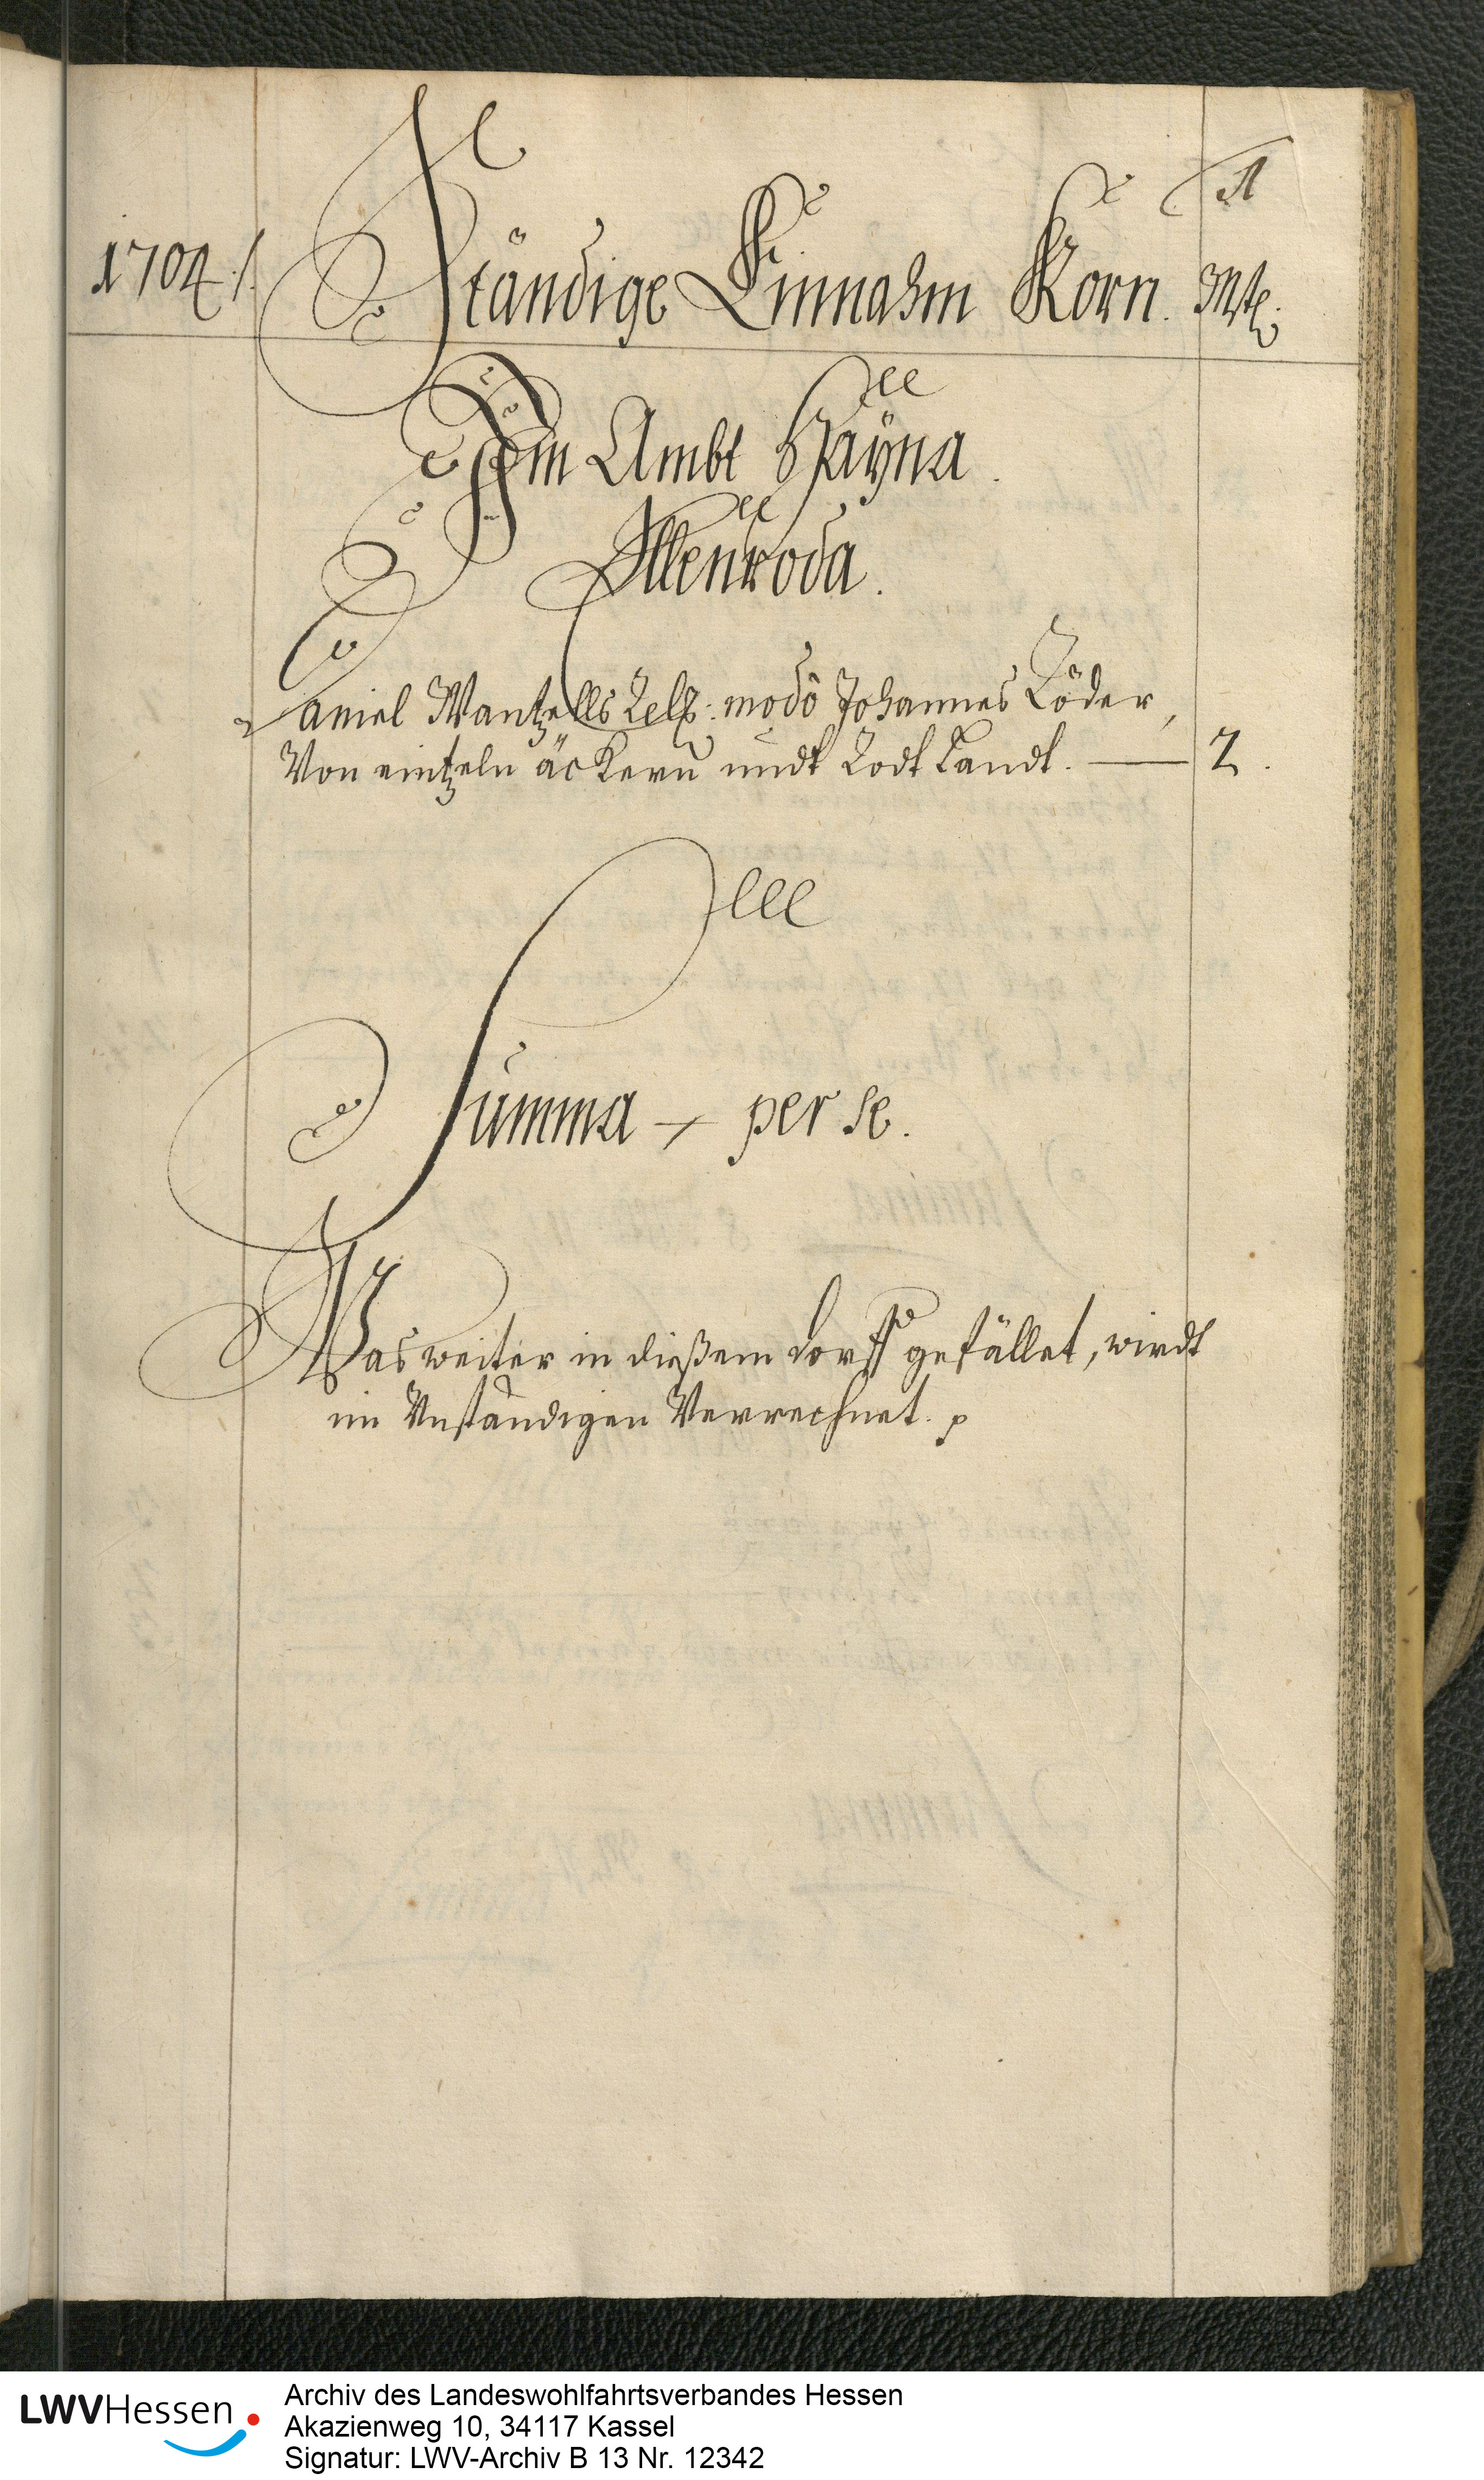 1
1704.
Ständige Einnahm Korn. Mtt.
Im Ambt Hayna.
Ellenroda.
Daniel Wantzells Rel: modò Johannes Röder,
Von eintzeln äckern undt Rodt Landt. — 2.
Summa per se.
Was weiter in dießem dorff gefället, wirdt
im Unständigen Verrechnet.
LWVHessen
Archiv des Landeswohlfahrtsverbandes Hessen
Akazienweg 10, 34117 Kassel
Signatur: LWV-Archiv B 13 Nr. 12342